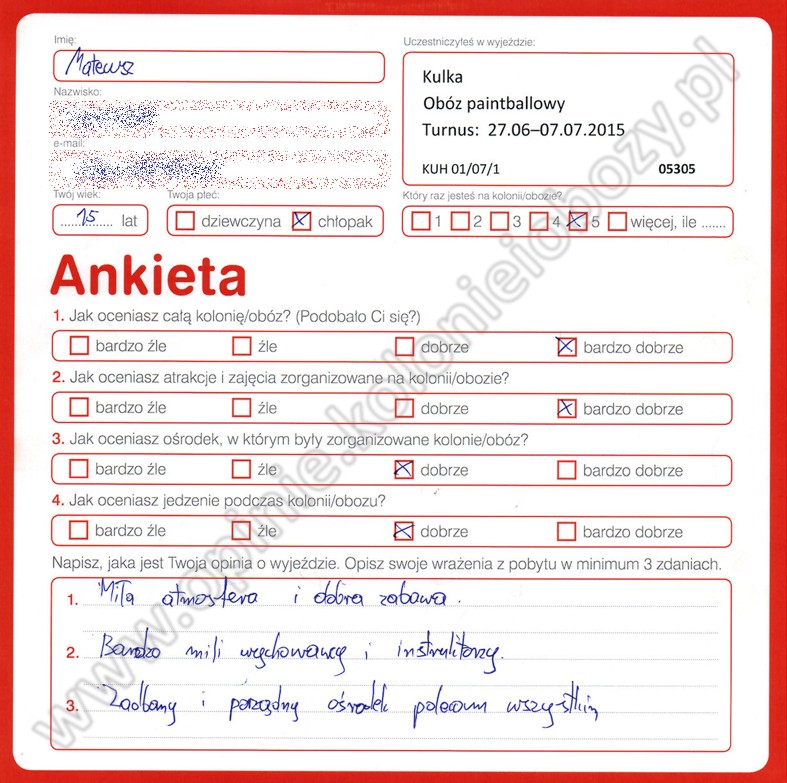 Imię:
Mateusz
Uczestniczyłeś w wyjeździe:
Kulka
Obóz paintballowy
Turnus: 27.06–07.07.2015
KUH 01/07/1 05305
Nazwisko:
e-mail:
Twój wiek:
15 lat
Twoja płeć:
dziewczyna chłopak
Który raz jesteś na kolonii/obozie?
1 2 3 4 5 więcej, ile .......
Ankieta
1. Jak oceniasz całą kolonię/obóz? (Podobało Ci się?)
bardzo źle źle dobrze bardzo dobrze
2. Jak oceniasz atrakcje i zajęcia zorganizowane na kolonii/obozie?
bardzo źle źle dobrze bardzo dobrze
3. Jak oceniasz ośrodek, w którym były zorganizowane kolonie/obóz?
bardzo źle źle dobrze bardzo dobrze
4. Jak oceniasz jedzenie podczas kolonii/obozu?
bardzo źle źle dobrze bardzo dobrze
Napisz, jaka jest Twoja opinia o wyjeździe. Opisz swoje wrażenia z pobytu w minimum 3 zdaniach.
1. Miła atmosfera i dobra zabawa.
2. Bardzo mili wychowawcy i instruktorzy.
3. Zadbany i porządny ośrodek polecam wszystkim
www.opinie.kolonieiobozy.pl